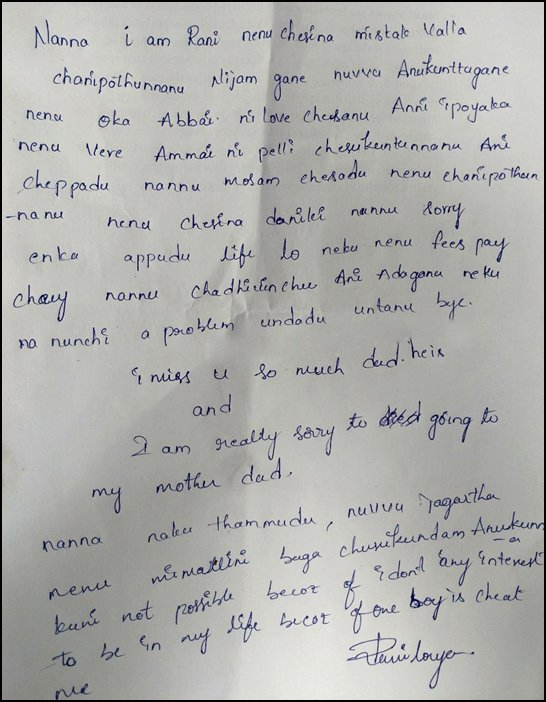 Nanna i am Rani nenu chesina mistake valla
chanipothunnanu Nijam gane nuvvu Anukunttugane
nenu oka Abbai ni love chesanu Anni ipoyaka
nenu vere Ammai ni pelli chesukuntunnanu Ani
cheppadu nannu mosam chesadu nenu chanipothun
-nanu nenu chesina daniki nannu sorry
enka appudu life lo neku nenu fees pay
chey nannu chadhivinchu Ani Adaganu neku
na nunchi a problem undadu untanu bye.
i miss u so much dad.
and
I am really sorry to going to
my mother dad.
nanna naku thammudu, nuvvu Jagartha
nenu mimallini baga chusukundam Anukunn
-a
kani not possible becoz of i don't any interest
to be in my life becoz of one boy is cheat
me